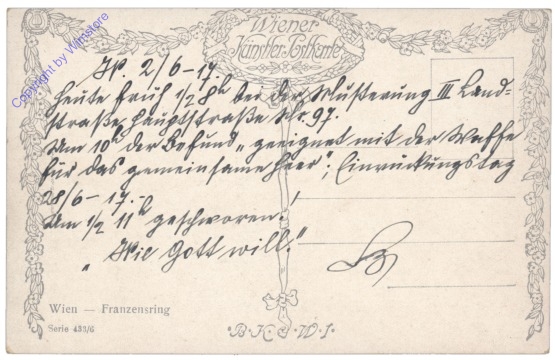 Wiener
Künstler-Postkarte
Copyright by Wimstore
W. 2/6-17.
Heute früh 1/2 8h bei der Musterung III Land-
straße, Hauptstraße Nr. 97.
Um 10h der Befund „geeignet mit der Waffe
für das gemeinsame Heer"; Einrückungstag
28/6-17.-
Um 1/2 11h geschworen!
„Wie Gott will."
Wien — Franzensring
Serie 433/6
B.K.W.I.